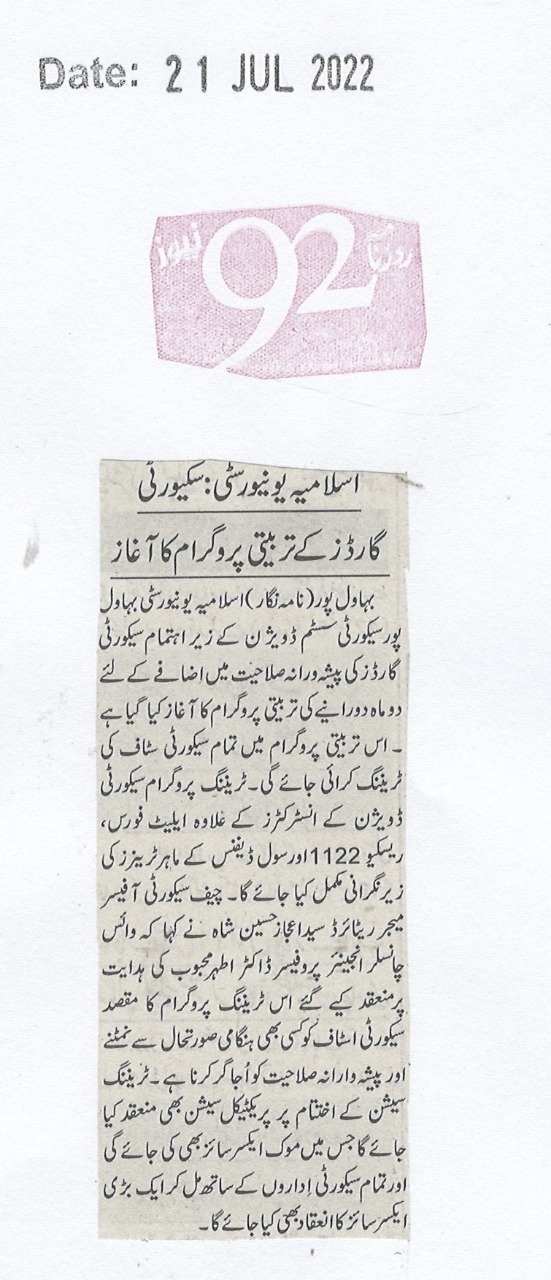 Date: 21 JUL 2022
روزنامہ 92 نیوز
اسلامیہ یونیورسٹی: سکیورٹی
گارڈز کے تربیتی پروگرام کا آغاز
بہاول پور (نامہ نگار) اسلامیہ یونیورسٹی بہاول
پور سیکورٹی سسٹم ڈویژن کے زیر اہتمام سیکورٹی
گارڈز کی پیشہ ورانہ صلاحیت میں اضافے کے لئے
دو ماہ دورانیے کی تربیتی پروگرام کا آغاز کیا گیا ہے
۔ اس تربیتی پروگرام میں تمام سیکورٹی سٹاف کی
ٹریننگ کرائی جائے گی۔ ٹریننگ پروگرام سیکورٹی
ڈویژن کے انسٹرکٹرز کے علاوہ ایلیٹ فورس،
ریسکیو 1122 اور سول ڈیفنس کے ماہر ٹرینرز کی
زیر نگرانی مکمل کیا جائے گا۔ چیف سیکورٹی آفیسر
میجر ریٹائرڈ سید اعجاز حسین شاہ نے کہا کہ وائس
چانسلر انجینئر پروفیسر ڈاکٹر اطہر محبوب کی ہدایت
پر منعقد کیے گئے اس ٹریننگ پروگرام کا مقصد
سیکورٹی اسٹاف کو کسی بھی ہنگامی صورتحال سے نمٹنے
اور پیشہ وارانہ صلاحیت کو اُجاگر کرنا ہے۔ ٹریننگ
سیشن کے اختتام پر پریکٹیکل سیشن بھی منعقد کیا
جائے گا جس میں موک ایکسرسائز بھی کی جائے گی
اور تمام سیکورٹی اداروں کے ساتھ مل کر ایک بڑی
ایکسرسائز کا انعقاد بھی کیا جائے گا۔